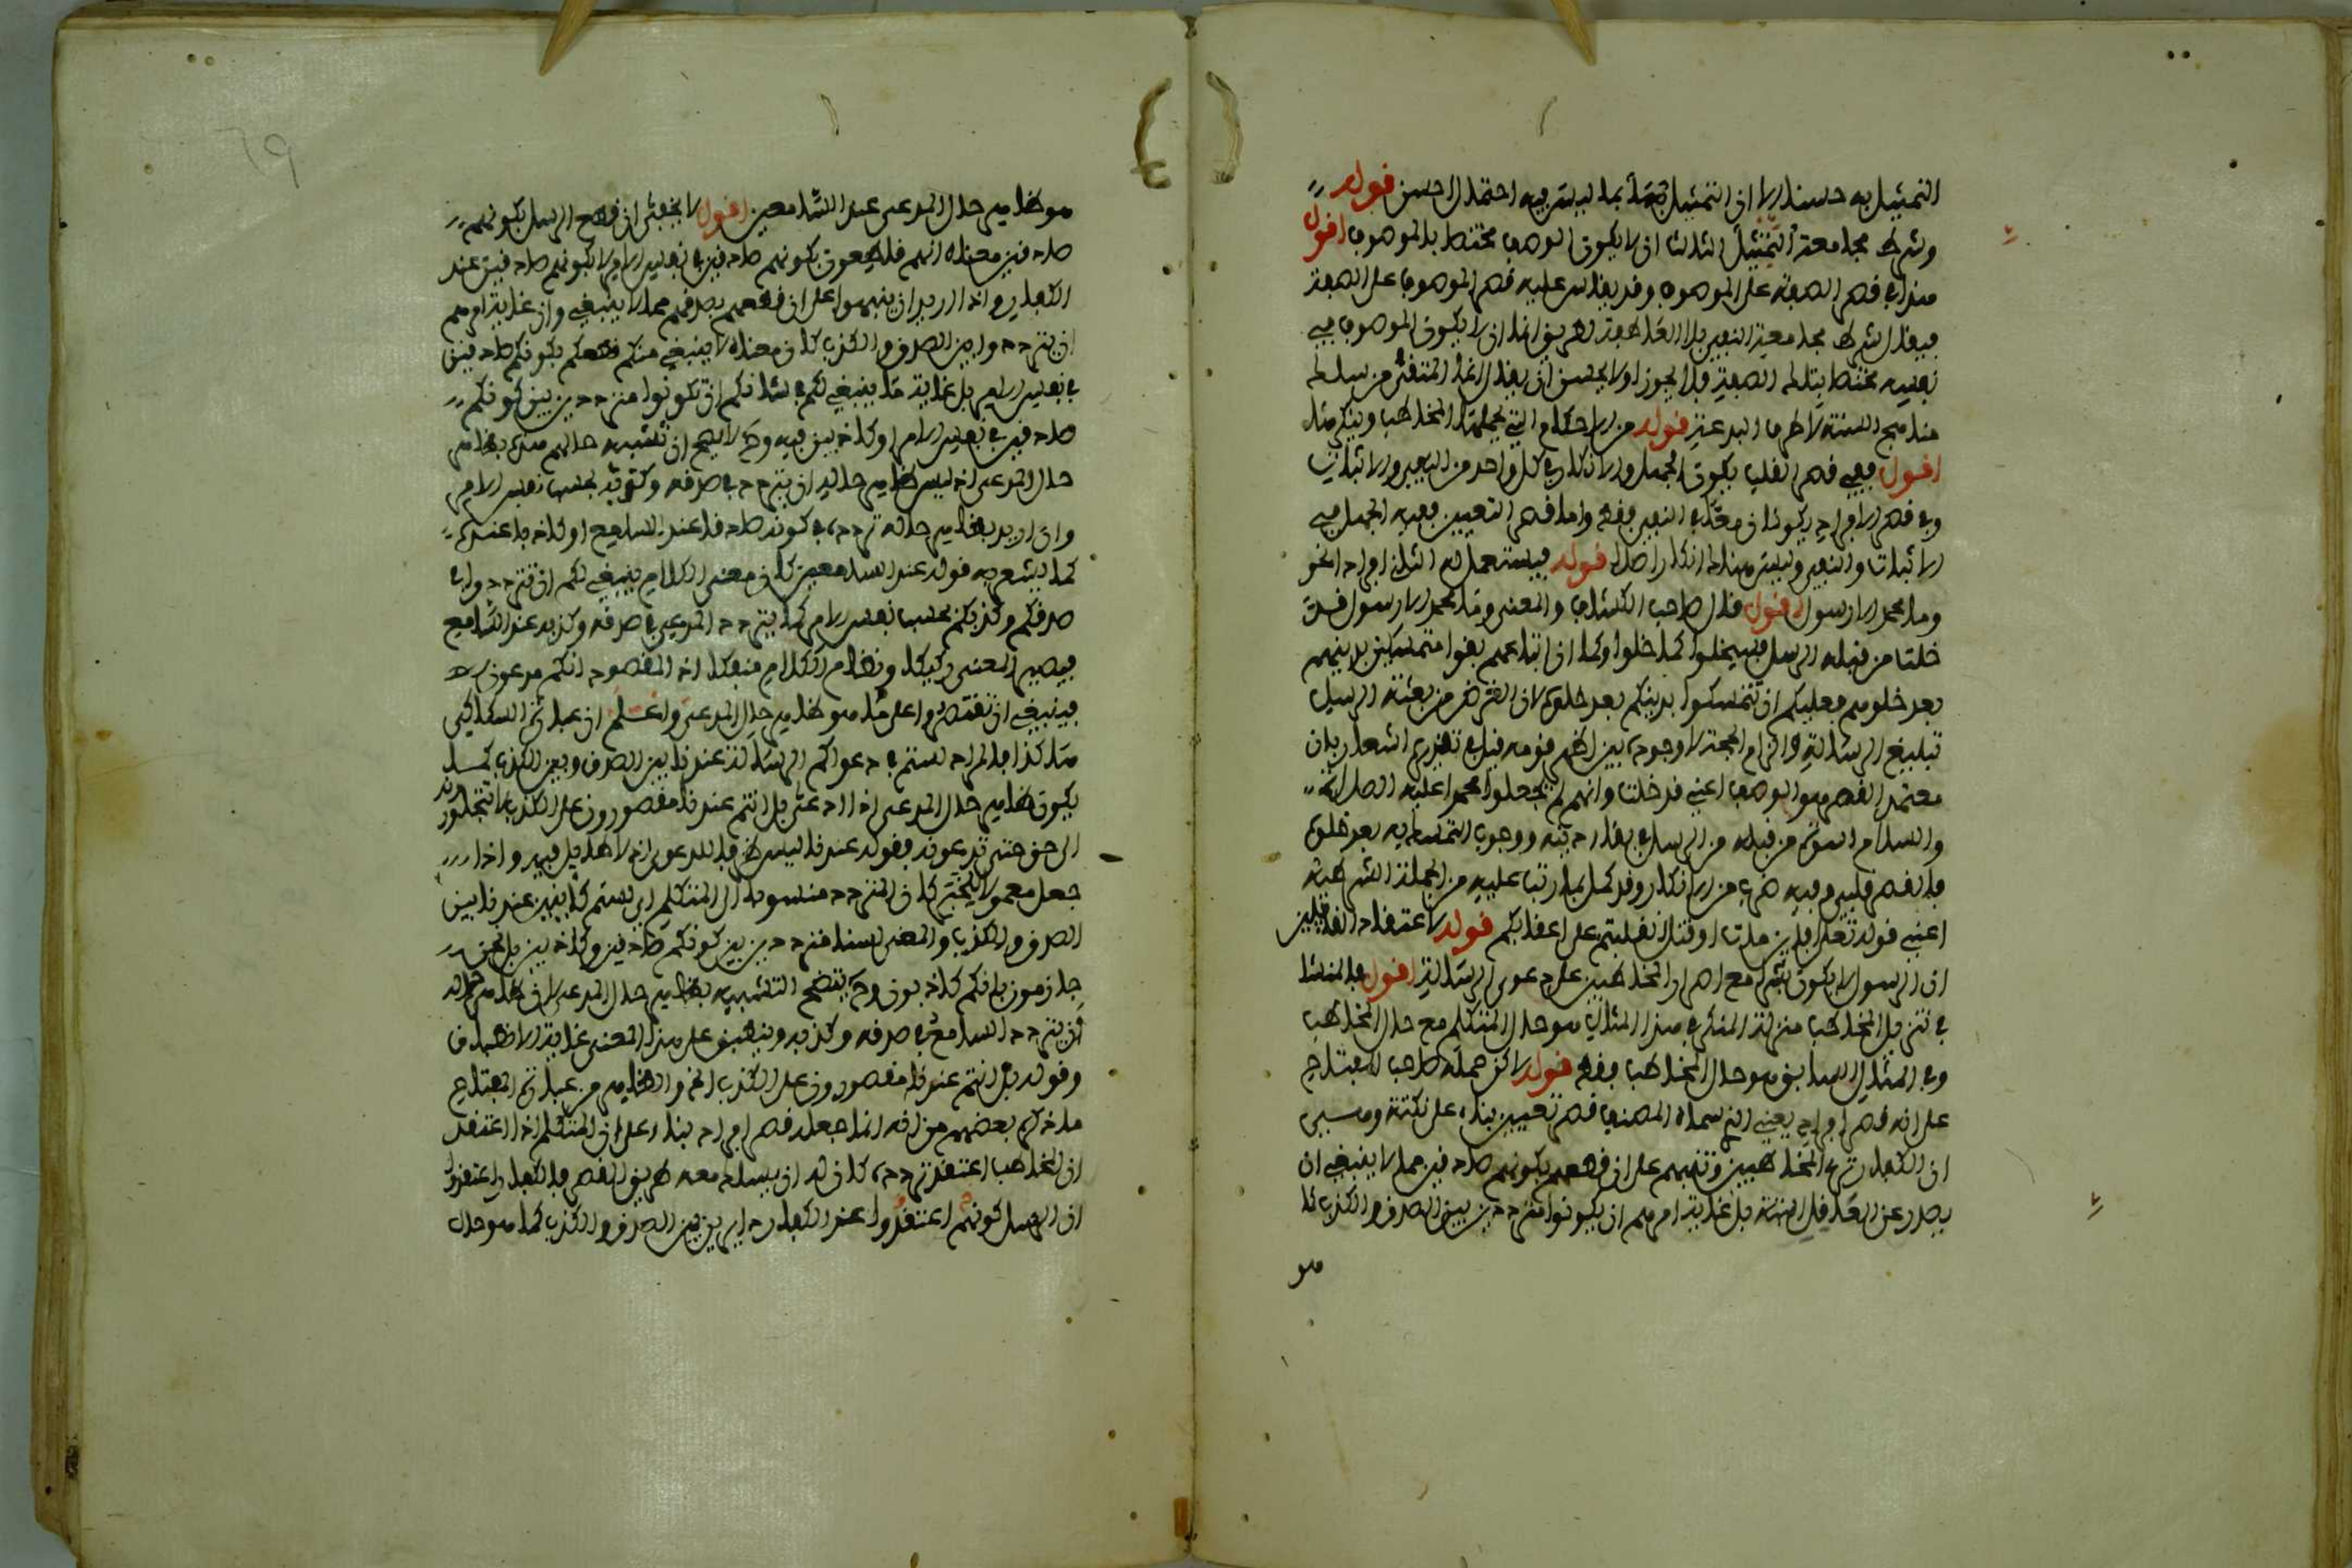 التمثيل به حسنا الا ان التمثيل بما ليس فيه احتمال احسن قوله
وشرط مجامعة الثالث ان لا يكون الوصف مختصا بالموصوف اقول
هذا في قصر الصفة على الموصوف وقد يقاس عليه قصر الموصوف على الصفة
فيقال شرط مجامعة النفي بلا العاطفة لطريق انما ان لا يكون الموصوف في
نفسه مختصا بتلك الصفة فلا يجوز او لا يحسن ان يقال انما المتقي من سلك
مناهج السنة لا طرق البدعة قوله من الاحكام التي يجهلها المخاطب وينكرها
اقول ففي قصر القلب يكون الجهل والانكار في كل واحد من النفي والاثبات
وفي قصر الافراد يكونان في النفي فقط واما قصر التعيين ففيه الجهل في
الاثبات والنفي وليس هناك انكار اصلا قوله فيستعمل له الثاني افرادا نحو
وما محمد الا رسول اقول قال صاحب الكشاف والمعنى وما محمد الا رسول قد
خلت من قبله الرسل فسيخلوا كما خلوا وكما ان اتباعهم بقوا متمسكين بدينهم
بعد خلوهم فعليكم ان تتمسكوا بدينكم بعد خلوه لان الغرض من بعثة الرسل
تبليغ الرسالة والزام الحجة لا وجوده بين اظهر قومه قبل تقريره اشعار بان
معتمد القصر هو الوصف اعني قد خلت وانهم لم يجعلوا محمدا عليه الصلاة
والسلام اسوة من قبله من الرسل في بقاء دينه ووجوب التمسك به بعد خلوه
فالقصر قلب وفيه ضرب من الانكار وقد كمل بما رتب عليه من الجملة الشرطية
اعني قوله تعالى افان مات او قتل انقلبتم على اعقابكم قوله لاعتقاد القائلين
ان الرسول لا يكون بشرا مع اصرار المخاطبين على دعوى الرسالة اقول فالمنشا
في تنزيل المخاطب منزلة المنكر في هذا المثال هو حال المتكلم مع حال المخاطب
وفي المثال السابق هو حال المخاطب فقط قوله لاكن حمله صاحب المفتاح
على انه قصر افراد يعني الذي سماه المصنف قصر تعيين بناء على نكتة وهي
ان الكفار ترى المخاطبين وتنبههم على ان قطعهم بكونهم صادقين مما لا ينبغي ان
يصدر عن العاقل البتة بل غاية امرهم ان يكونوا مترددين بين الصدق والكذب كما
هو
هو ظاهر حال المدعى عند السامعين اقول لا يخفى ان قطع الرسل بكونهم
صادقين معناه انهم قاطعون بكونهم صادقين في نفس الامر لا بكونهم صادقين عند
الكفار واذا اريد ان ينبهوا على ان قطعهم بصدقهم مما لا ينبغي وان غاية امرهم
ان يترددوا بين الصدق والكذب كان معناه لا ينبغي منكم قطعكم بكونكم صادقين
في نفس الامر بل غاية ما ينبغي لكم في شانكم ان تكونوا مترددين بين كونكم
صادقين في نفس الامر او كاذبين فيه وح لا يصح ان تشبيه حالهم هذه بظاهر
حال المدعى اذ ليس ظاهر حاله ان يتردد في صدقه وكذبه بحسب نفس الامر
وان اريد بظاهر حاله تردده في كونه صادقا عند السامع او كاذبا عنده
كما يشعر به قوله عند السامعين كان معنى الكلام ينبغي لكم ان تترددوا في
صدقكم وكذبكم بحسب نفس الامر كما يتردد المدعى في صدقه وكذبه عند السامع
فيصير المعنى ركيكا ونظام الكلام منفكا اذ المقصود انكم مدعون
فينبغي ان تقتصروا على ما هو ظاهر حال المدعى واعلم ان عبارة السكاكي
هكذا فالمراد لستم في دعواكم الرسالة عندنا بين الصدق وبين الكذب كما
يكون ظاهر حال المدعى اذا ادعى بل انتم عندنا مقصورون على الكذب لا تتجاوزونه
الى حق حتى تدعوه فقوله عندنا ليس ظرفا للدعوى اذ لا طايل فيه واذا
جعل معمولا كان المتردد منسوبا الى المتكلم اي لستم كاينين عندنا بين
الصدق والكذب والمعنى لسنا مترددين بين كونكم صادقين وكاذبين بل نحن
جازمون بانكم كاذبون وح يتضح التشبيه بظاهر حال المدعى لان ظاهر حاله
ان يتردد السامع في صدقه وكذبه وينطبق على هذا المعنى غاية الانطباق
وقوله بل انتم عندنا مقصورون على الكذب الخ والظاهر من عبارة المفتاح
ما ذكره بعضهم من انه انما جعله قصر افراد بناء على ان المتكلم اذا اعتقد
ان المخاطب اعتقد تردده كان له ان يسلك معه طريق القصر فالكفار اعتقدوا
ان الرسل كونهم اعتقدوا عند الكفار دائرين بين الصدق والكذب كما هو حال